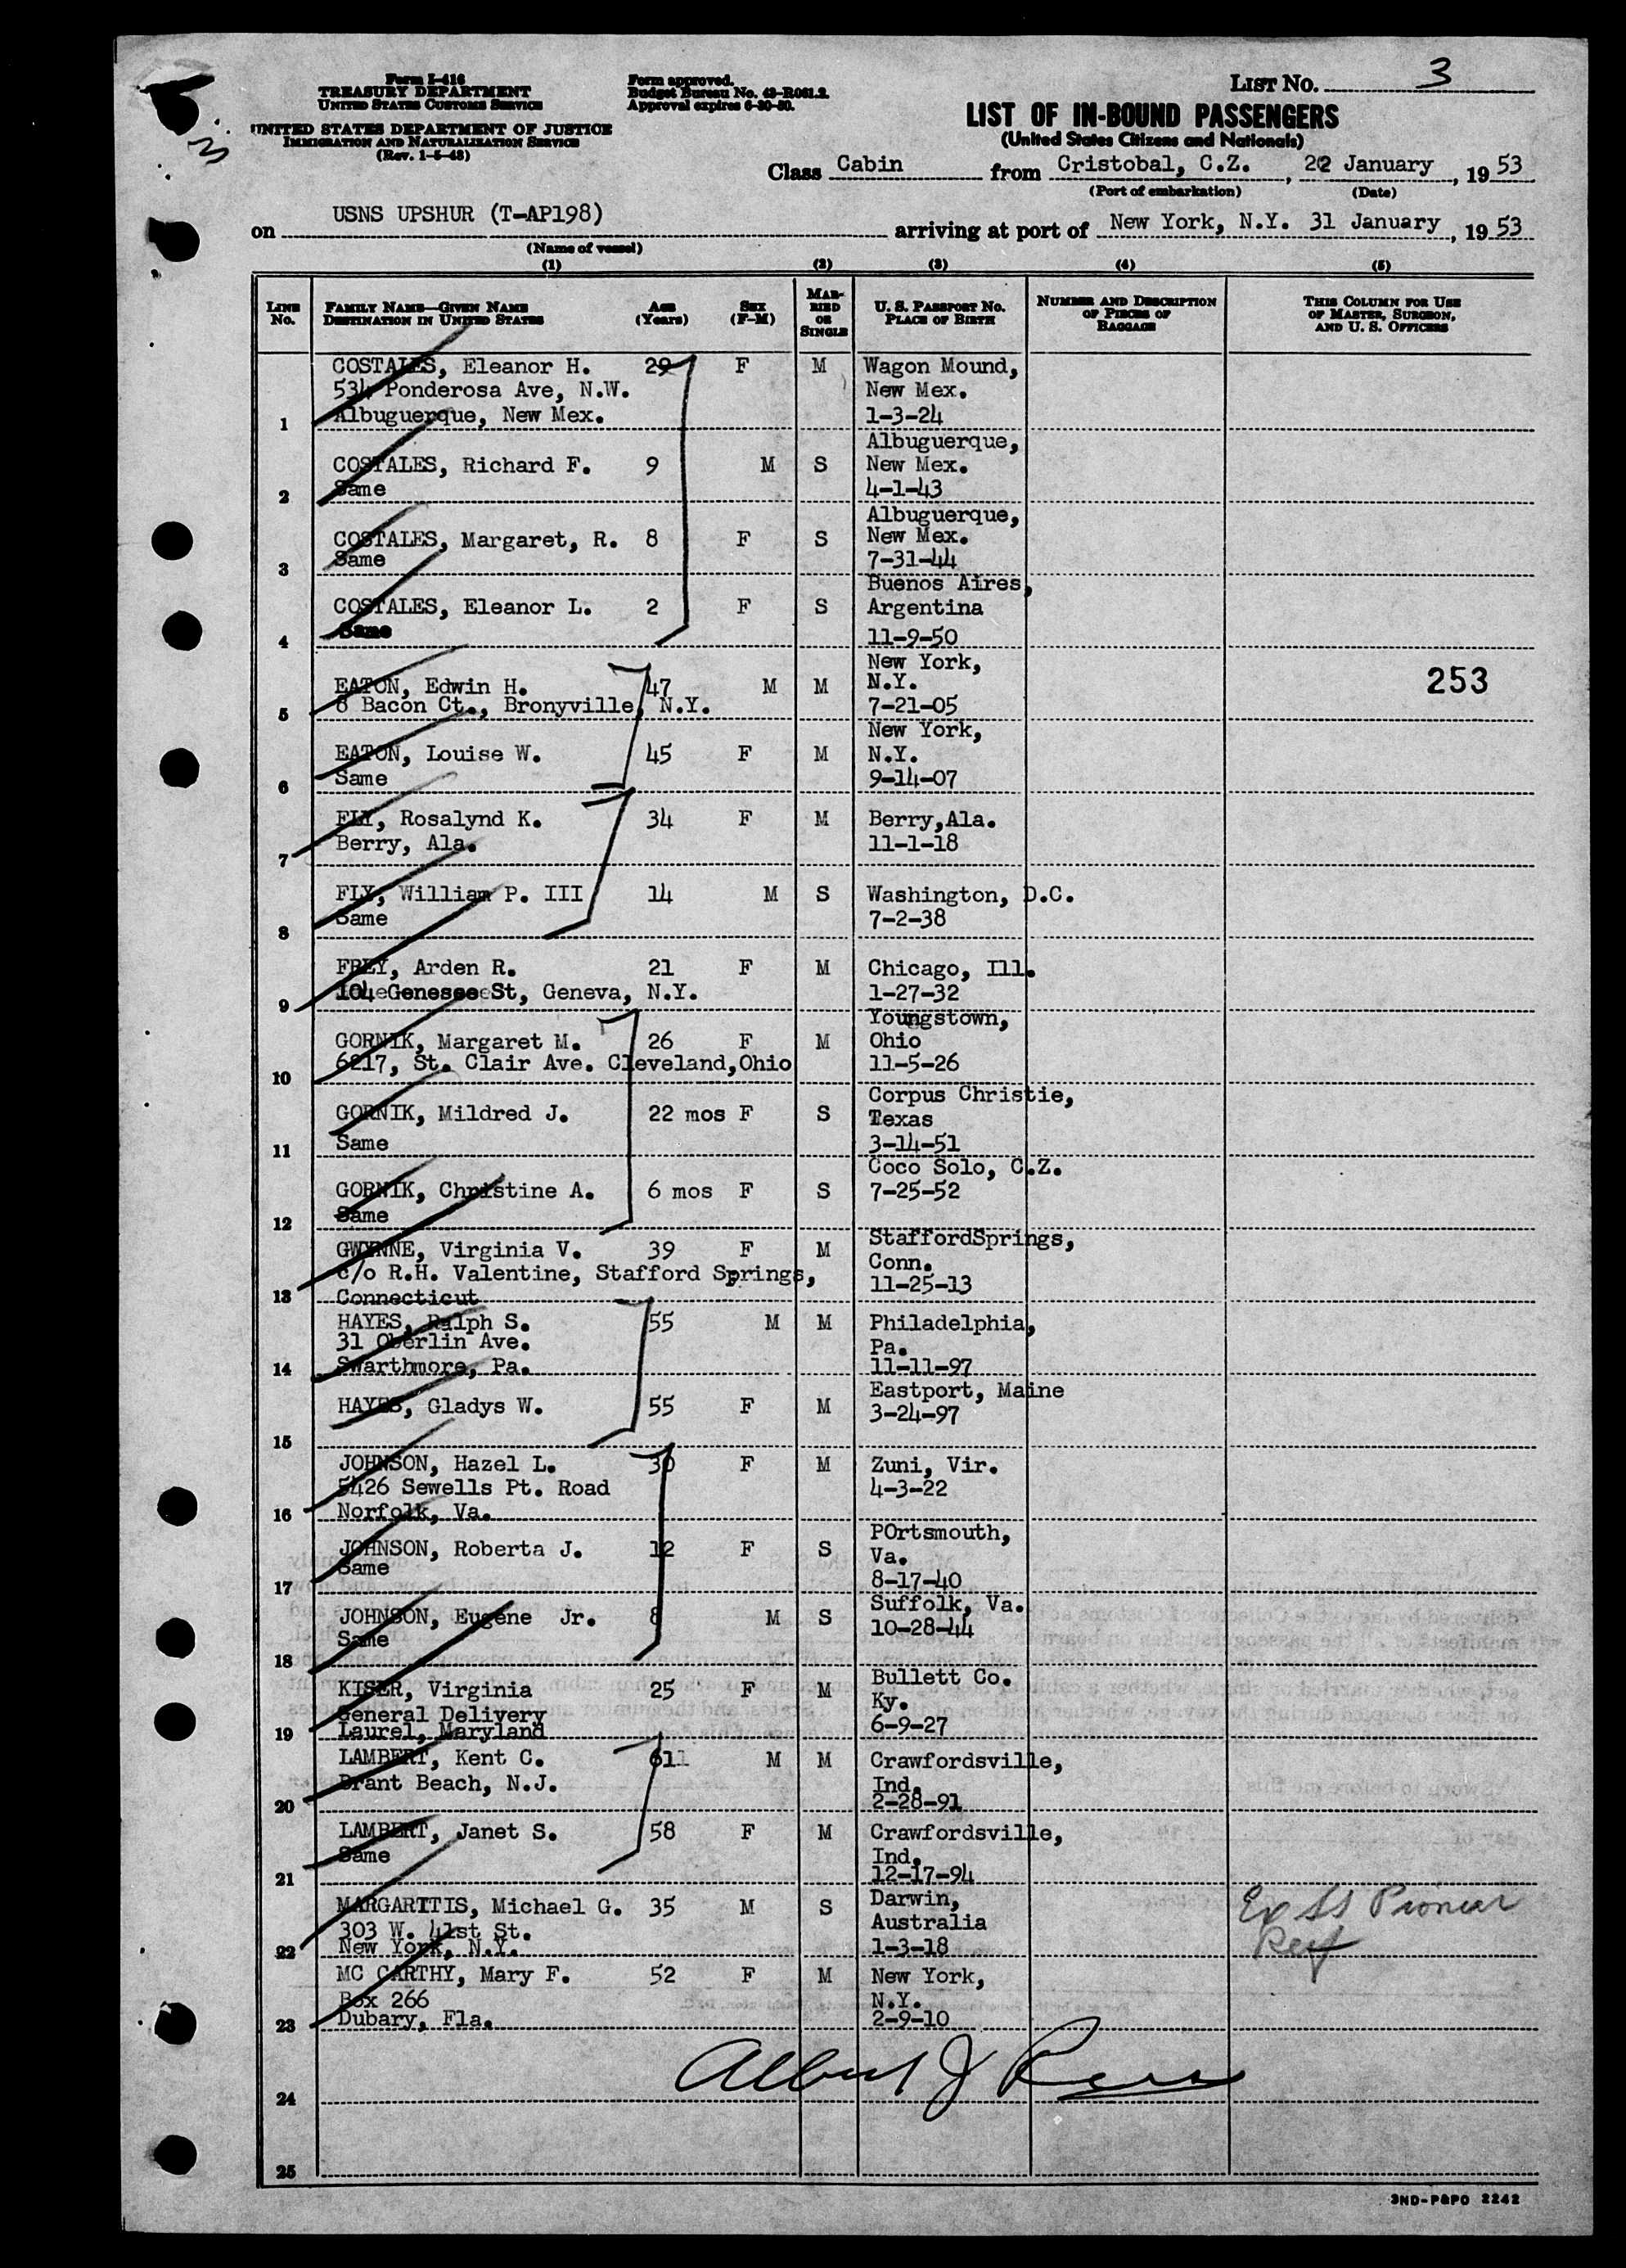 LIST NO. 3
Form I-416
TREASURY DEPARTMENT
UNITED STATES CUSTOMS SERVICE
UNITED STATES DEPARTMENT OF JUSTICE
IMMIGRATION AND NATURALIZATION SERVICE
(Rev. 1-5-48)
Form approved.
Budget Bureau No. 43-R061.2.
Approval expires 6-30-50.
3
LIST OF IN-BOUND PASSENGERS
(United States Citizens and Nationals)
Class Cabin from Cristobal, C.Z., 22 January, 1953
(Port of embarkation) (Date)
on USNS UPSHUR (T-AP198) arriving at port of New York, N.Y. 31 January, 1953
(Name of vessel)
(1) (2) (3) (4) (5)
LINE No. FAMILY NAME—GIVEN NAME DESTINATION IN UNITED STATES AGE (Years) SEX (F-M) MARRIED OR SINGLE U. S. PASSPORT NO. PLACE OF BIRTH NUMBER AND DESCRIPTION OF PIECES OF BAGGAGE THIS COLUMN FOR USE OF MASTER, SURGEON, AND U. S. OFFICERS
COSTALES, Eleanor H. 29 F M Wagon Mound,
534 Ponderosa Ave, N.W. New Mex.
1 Albuguerque, New Mex. 1-3-24
Albuguerque,
COSTALES, Richard F. 9 M S New Mex.
2 Same 4-1-43
Albuguerque,
COSTALES, Margaret, R. 8 F S New Mex.
3 Same 7-31-44
Buenos Aires,
COSTALES, Eleanor L. 2 F S Argentina
4 Same 11-9-50
New York,
EATON, Edwin H. 47 M M N.Y.
5 8 Bacon Ct., Bronyville, N.Y. 7-21-05
253
New York,
EATON, Louise W. 45 F M N.Y.
6 Same 9-14-07
FLY, Rosalynd K. 34 F M Berry,Ala.
7 Berry, Ala. 11-1-18
FLY, William P. III 14 M S Washington, D.C.
8 Same 7-2-38
FREY, Arden R. 21 F M Chicago, Ill.
9 104 Genesee St, Geneva, N.Y. 1-27-32
Youngstown,
GORNIK, Margaret M. 26 F M Ohio
10 6217, St. Clair Ave. Cleveland,Ohio 11-5-26
Corpus Christie,
GORNIK, Mildred J. 22 mos F S Texas
11 Same 3-14-51
Coco Solo, C.Z.
GORNIK, Christine A. 6 mos F S 7-25-52
12 Same
GWYNNE, Virginia V. 39 F M StaffordSprings,
c/o R.H. Valentine, Stafford Springs, Conn.
13 Connecticut 11-25-13
HAYES, Ralph S. 55 M M Philadelphia,
31 Oberlin Ave. Pa.
14 Swarthmore, Pa. 11-11-97
Eastport, Maine
15 HAYES, Gladys W. 55 F M 3-24-97
JOHNSON, Hazel L. 30 F M Zuni, Vir.
5426 Sewells Pt. Road 4-3-22
16 Norfolk, Va.
POrtsmouth,
JOHNSON, Roberta J. 12 F S Va.
17 Same 8-17-40
Suffolk, Va.
JOHNSON, Eugene Jr. 8 M S 10-28-44
18 Same
KISER, Virginia 25 F M Bullett Co.
General Delivery Ky.
19 Laurel, Maryland 6-9-27
LAMBERT, Kent C. 61 M M Crawfordsville,
Brant Beach, N.J. Ind.
20 2-28-91
LAMBERT, Janet S. 58 F M Crawfordsville,
Same Ind.
21 12-17-94
MARGARITIS, Michael G. 35 M S Darwin,
303 W. 41st St. Australia
22 New York, N.Y. 1-3-18
Ex SS Pioneer
Reef
MC CARTHY, Mary F. 52 F M New York,
Box 266 N.Y.
23 Dubary, Fla. 2-9-10
Albert J
24
25
3ND-P&PO 2242